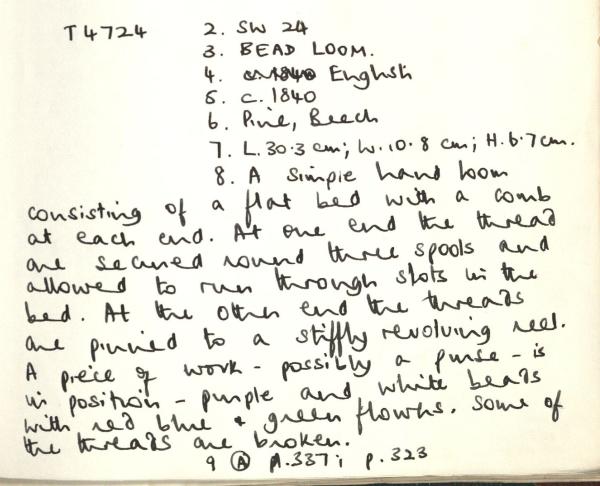 T4724 2. SW 24
3. BEAD LOOM.
4. English
5. c.1840
6. Pine, Beech
7. L.30.3 cm; W.10.8 cm; H.6.7cm.
8. A simple hand loom
consisting of a flat bed with a comb
at each end. At one end the thread
are secured round three spools and
allowed to run through slots in the
bed. At the other end the threads
are pinned to a stiffly revolving reel.
A piece of work - possibly a purse - is
in position - purple and white beads
with red blue + green flowers. Some of
the threads are broken.
9 (A) p.337; p.323